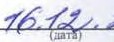 16.12.
(дата)